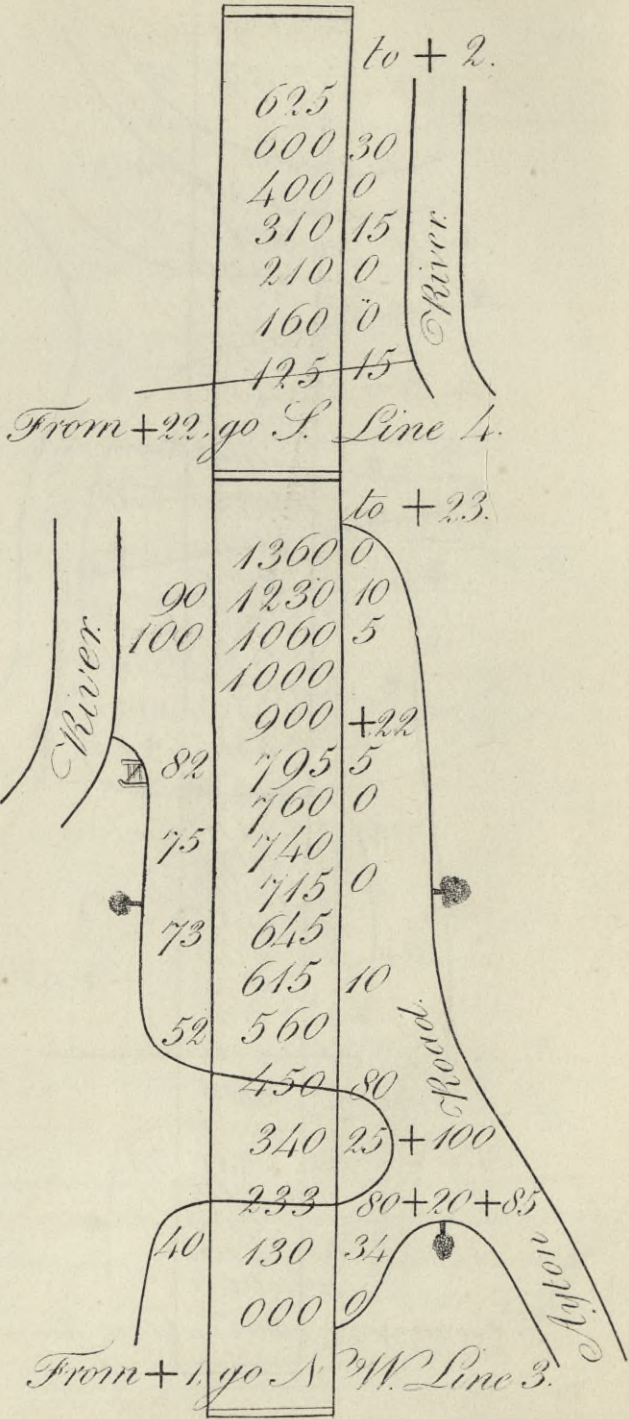 to + 2.
625
600 30
400 0
310 15
210 0
160 0
125 15
River
From +22, go S. Line 4.
to + 23.
1360 0
90 1230 10
100 1060 5
1000
River
900 +22
82 795 5
760 0
75 740
715 0
73 645
615 10
52 560
450 80
340 25 + 100
233 80+20+85
40 130 34
000 0
Ayton Road
From +1, go N W. Line 3.